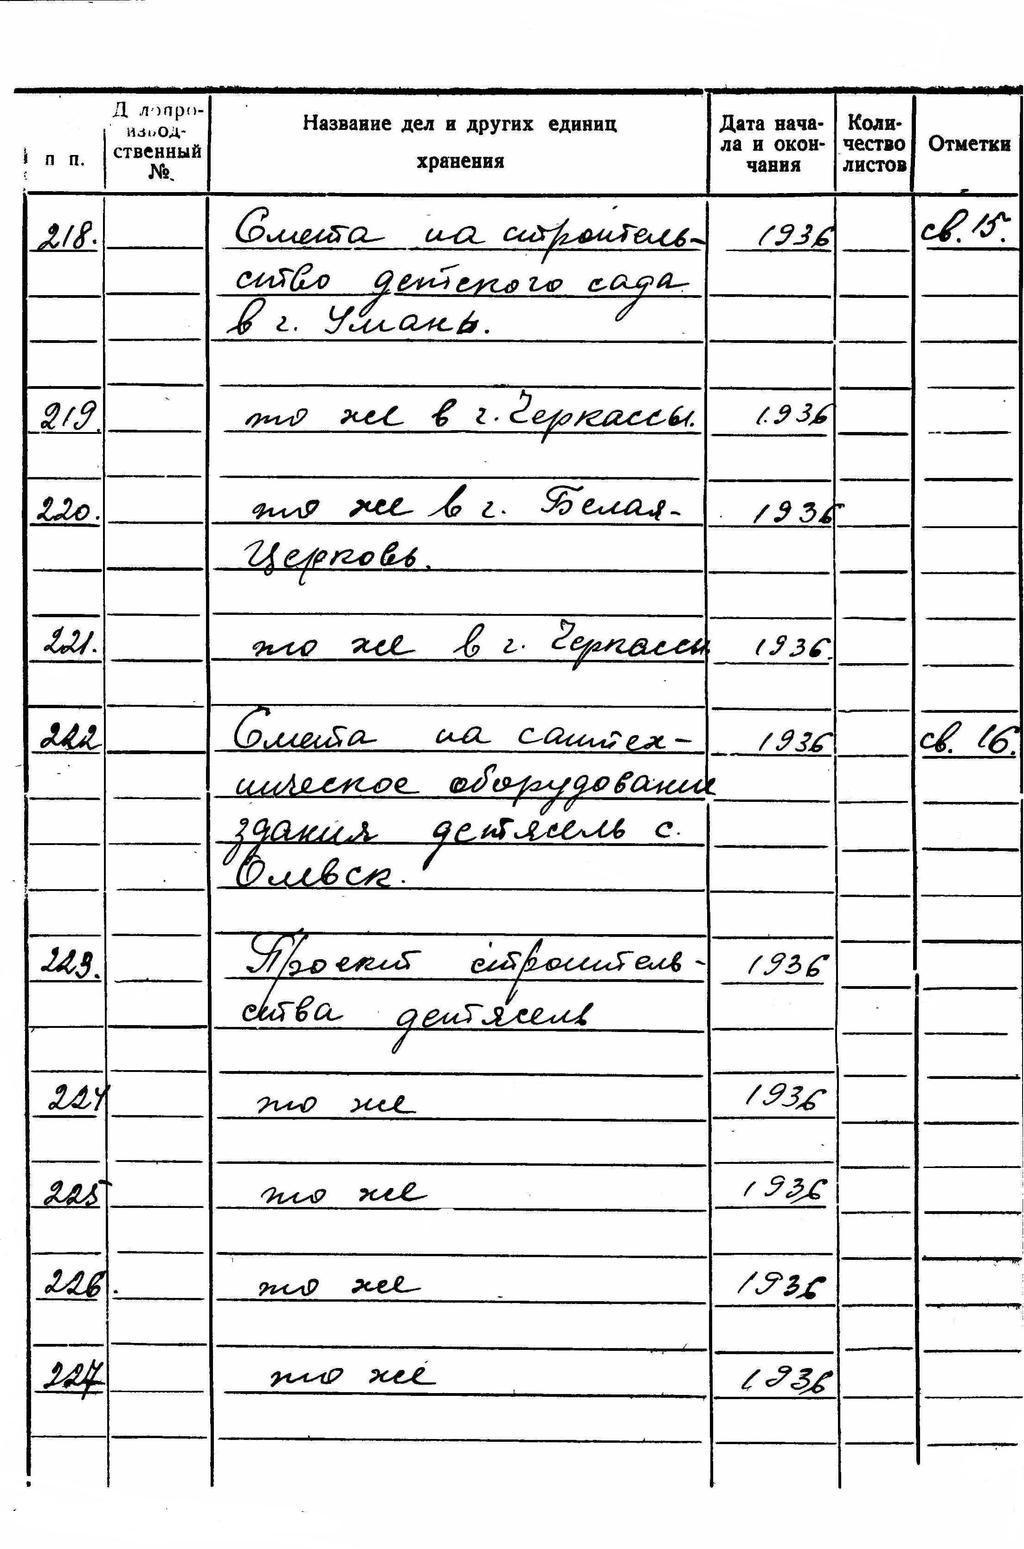 п п.
Делопро-
извод-
ственный
№.
Название дел и других единиц
хранения
Дата нача-
ла и окон-
чания
Коли-
чество
листов
Отметки
218. Смета на строитель- 1936 св. 15.
ство детского сада
в г. Умань.
219. то же в г. Черкассы. 1936
220. то же в г. Белая- 1936
Церковь.
221. то же в г. Черкассы 1936.
222 Смета на сантех- 1936 св. 16.
ническое оборудование
здания детясель с.
Олевск.
223. Проект строитель- 1936
ства детясель
224 то же 1936
225 то же 1936
226. то же 1936
227 то же 1936